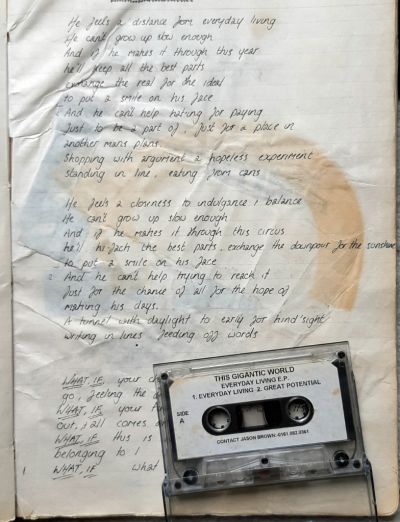 He feels a distance from everyday living
He can't grow up slow enough
And if he makes it through this year
he'll keep all the best parts
exchange the real for the ideal
to put a smile on his face
And he can't help hating for paying
Just to be a part of, just for a place in
another mans plans.
Shopping with argument a hopeless experiment
standing in line, eating from cans
He feels a closeness to indulgance / balance
He can't grow up slow enough
And if he makes it through this circus
he'll hi-jack the best parts, exchange the downpour for the sunshine
to put a smile on his face
2 And he can't help trying to reach it
Just for the chance of all for the hope of
making his days.
A tunnel with daylight to early for hind'sight
writing in lines feeding off words
WHAT IF your
go, feeling the
WHAT IF your
out, all comes
WHAT IF this is
belonging to
1 WHAT IF what
THIS GIGANTIC WORLD
EVERYDAY LIVING E.P.
1. EVERYDAY LIVING 2. GREAT POTENTIAL
SIDE
A
CONTACT JASON BROWN